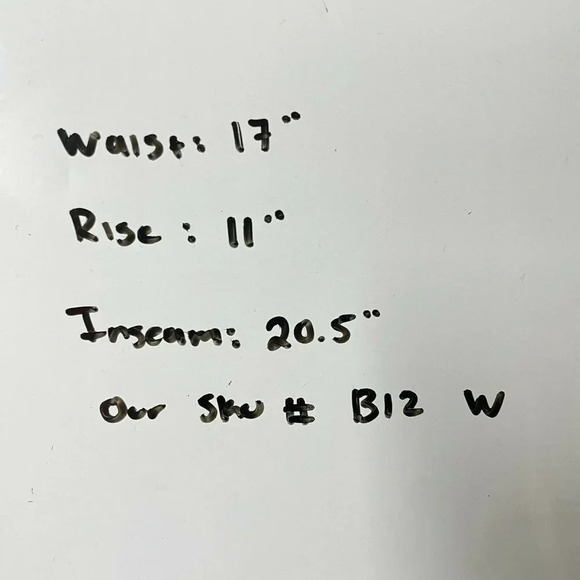 Waist: 17"
Rise: 11"
Inseam: 20.5"
Our Sku # B12 W